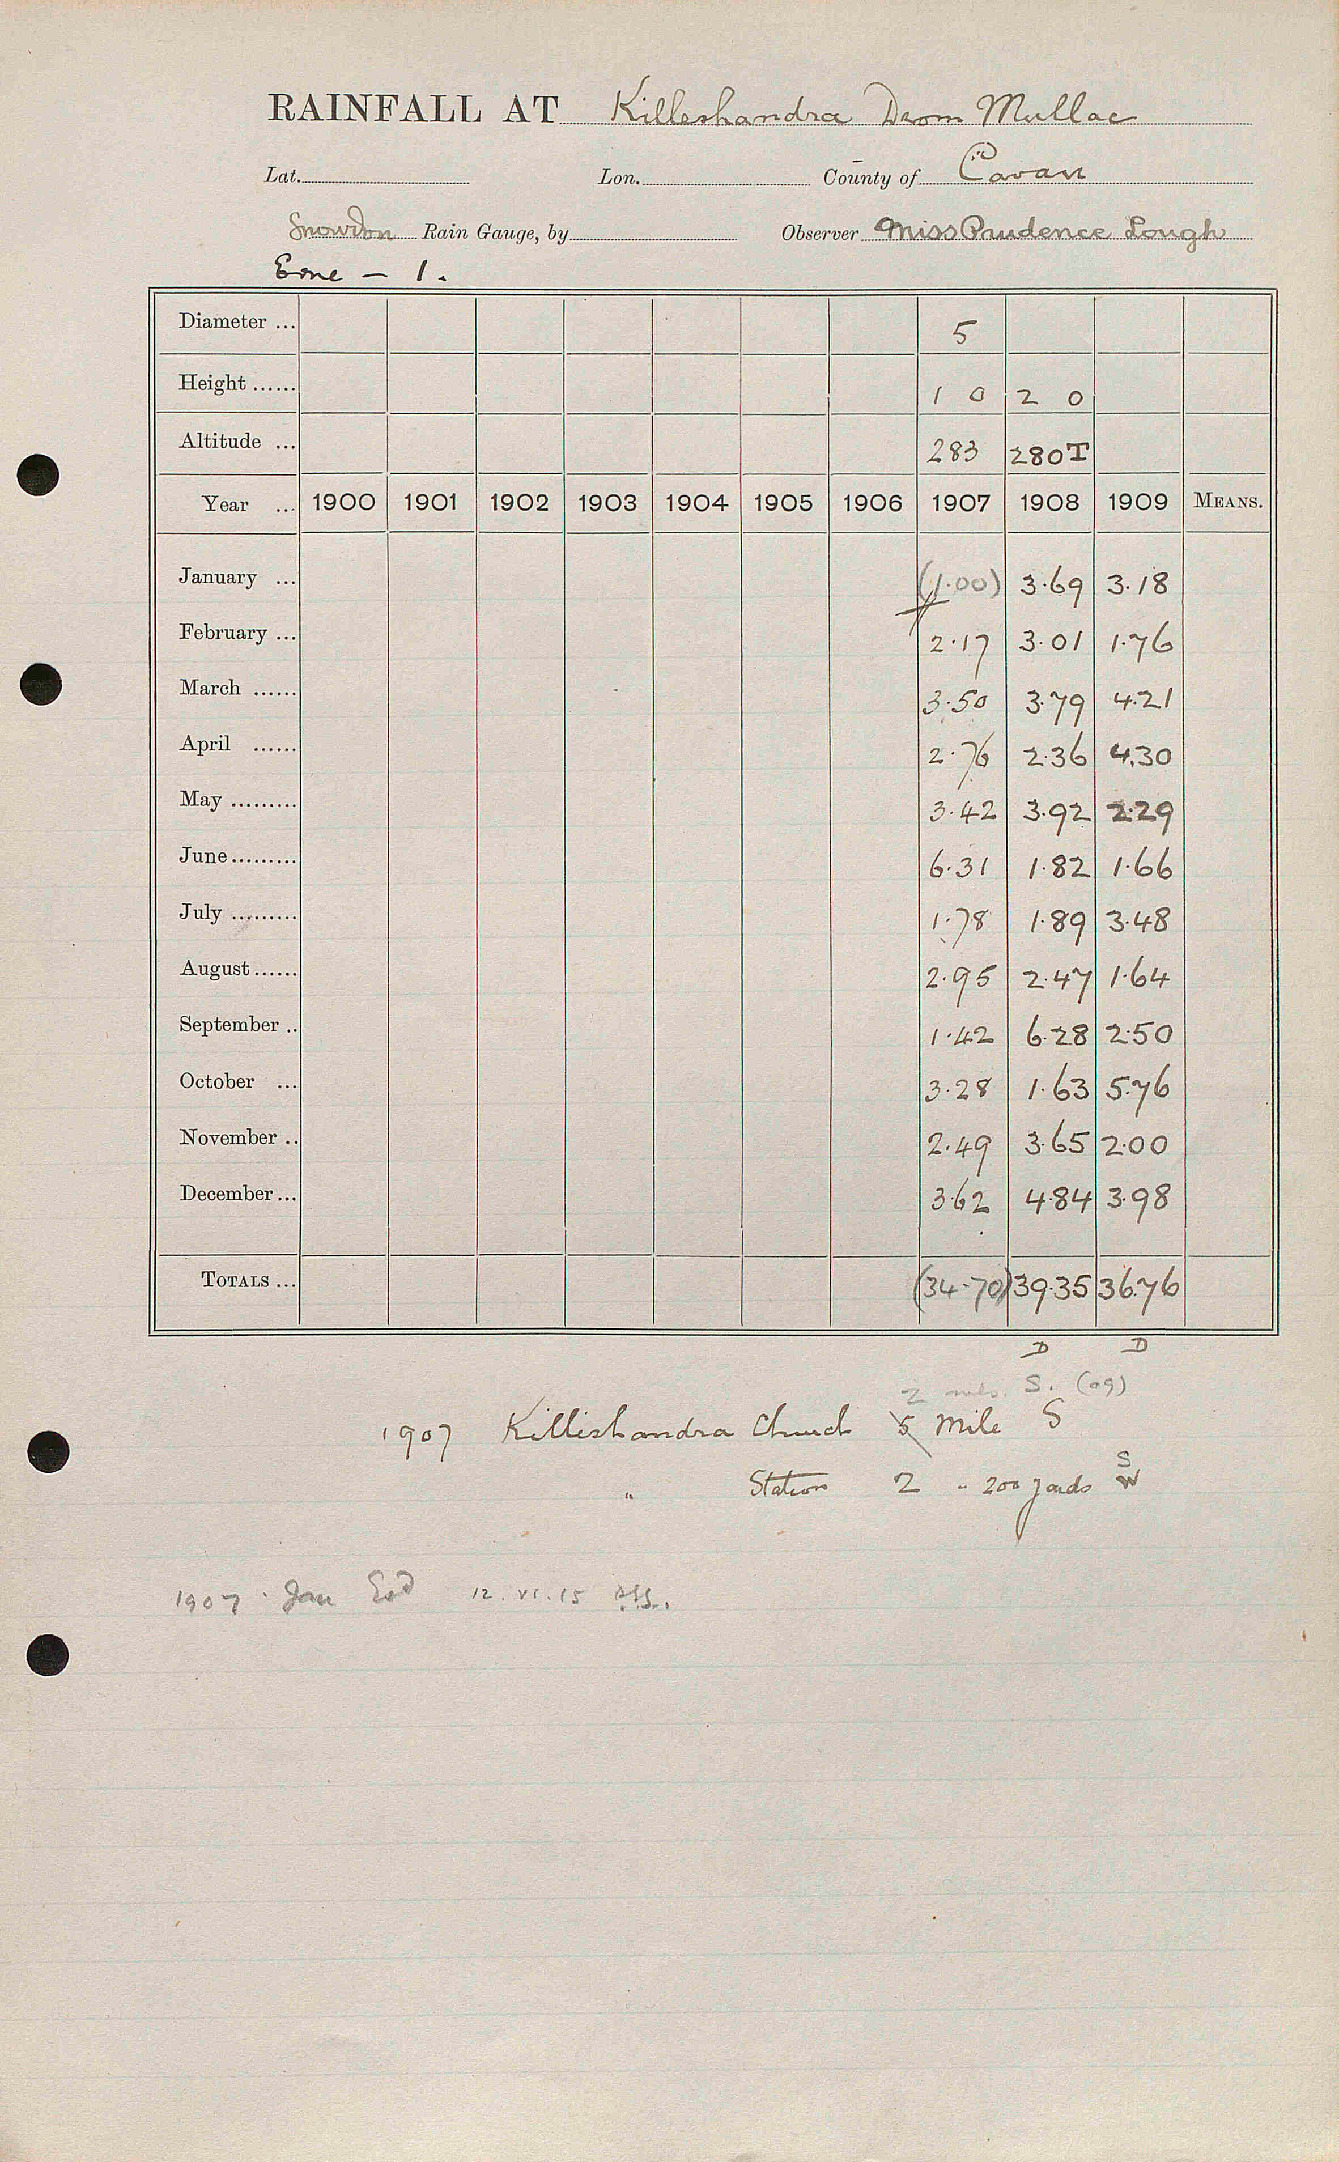 RAINFALL AT Killeshandra Drom Mullac
Lat. Lon. County of Cavan
Snowdon Rain Gauge, by Observer Miss Prudence Lough
Erne - 1.
Diameter ... 5
Height ...... 1 0 2 0
Altitude ... 283 280T
Year ... 1900 1901 1902 1903 1904 1905 1906 1907 1908 1909 MEANS.
January ... (1.00) 3.69 3.18
February ... 2.17 3.01 1.76
March ...... 3.50 3.79 4.21
April ...... 2.76 2.36 4.30
May ......... 3.42 3.92 2.29
June ......... 6.31 1.82 1.66
July ......... 1.78 1.89 3.48
August ...... 2.95 2.47 1.64
September .. 1.42 6.28 2.50
October ... 3.28 1.63 5.76
November .. 2.49 3.65 2.00
December ... 3.62 4.84 3.98
TOTALS ... (34.70) 39.35 36.76
D D
2 mls. S. (09)
1907 Killishandra Church 5 Mile S
" Station 2 " 200 yards S W
1907 Jan Estd 12.VI.15